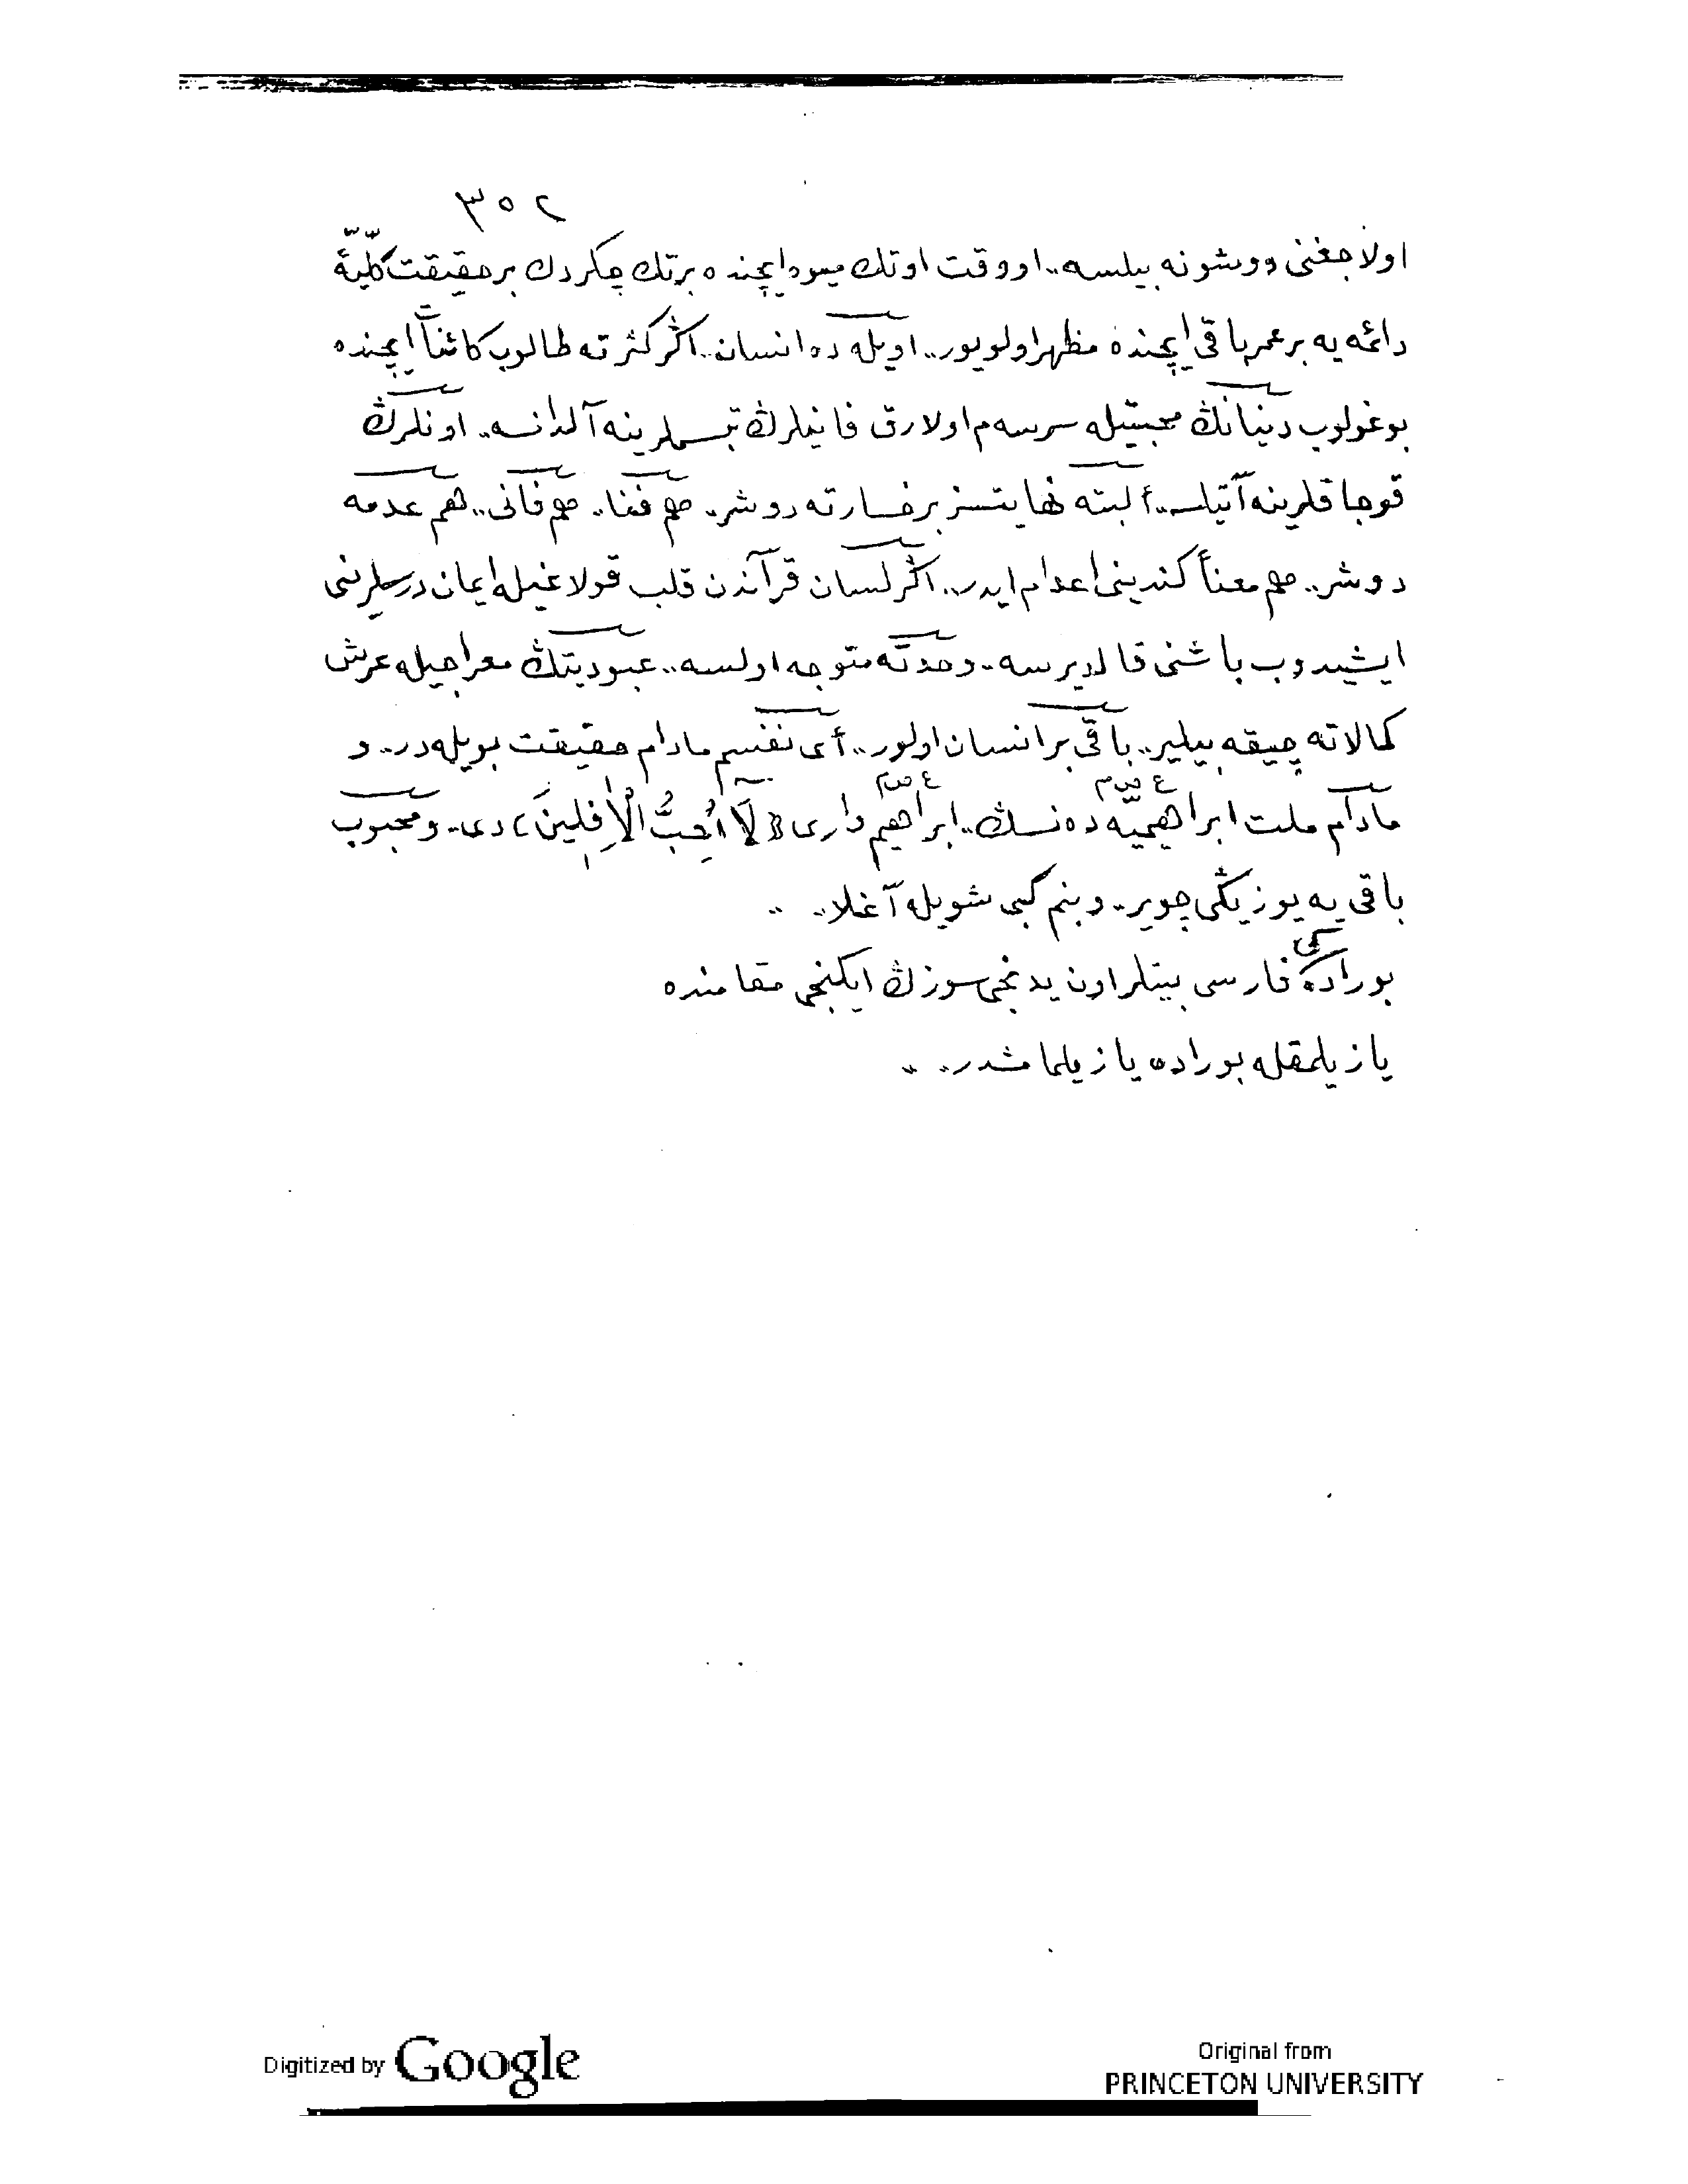 ٣٥٢
اولاجغنی دوشونه بیلسه.. او وقت او تك میوه ایچنده برتك چكردك بر حقیقت كلّیهٔ
دائمه یه بر عمر باقی ایچنده مظهر اولویور.. اویله ده انسان.. اڭر كثرته طالوب كائنات ایچنده
بوغولوب دنیانڭ محبتیله سرسم اولارق فانیلرڭ تبسملرینه آلدانسه.. اونلرڭ
قوجاقلرینه آتیلسه.. ألبته نهایتسز بر خسارته دوشر.. هم فنا.. هم فانی.. هم عدمه
دوشر.. هم معنأ كندینی اعدام ایدر.. اڭر لسان قرآندن قلب قولاغیله ایمان درسلرینی
ایشیدوب باشنی قالدیرسه.. وحدته متوجه اولسه.. عبودیتڭ معراجیله عرش
كمالاته چیقه بیلیر.. باقی بر انسان اولور.. أی نفسم مادام حقیقت بویله در.. و
مادام ملت ابراهیمیّه ده نسڭ.. ابراهیم واری ﴿لَآ اُحِبُّ الْاٰفِلِينَ﴾ دی.. و محبوب
باقی یه یوزیڭی چویر.. و بنم كبی شویله آغلا.. ..
بوراده كی فارسی بیتلر اون یدنجی سوزڭ ایكنجی مقامنده
یازیلمقله بوراده یازیلمامشدر.. ..
Digitized by Google
Original from
PRINCETON UNIVERSITY